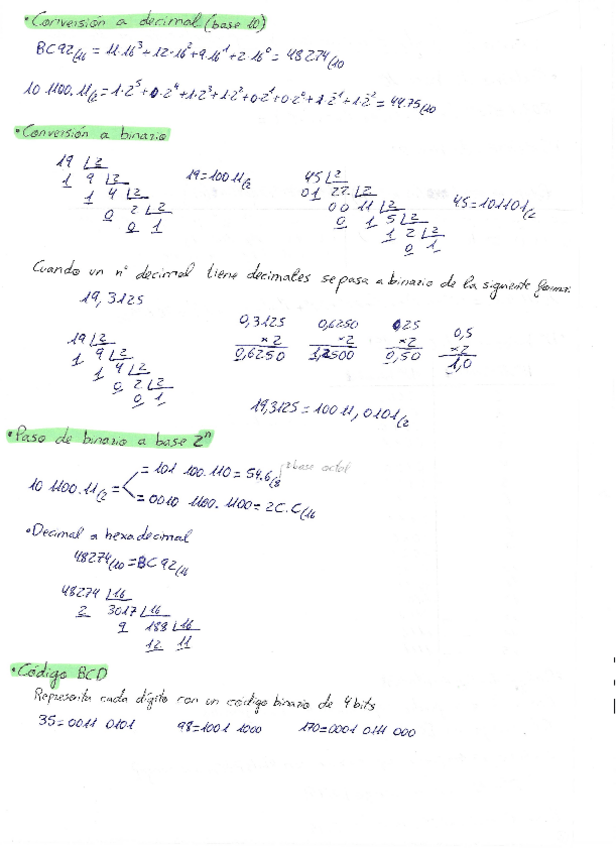 • Conversión a decimal (base 10)
BC92/16 = 11·16³+12·16²+9·16¹+2·16⁰ = 48274/10
10 1100.11/2 = 1·2⁵+0·2⁴+1·2³+1·2²+0·2¹+0·2⁰+1·2⁻¹+1·2⁻² = 44.75/10
• Conversión a binario
19 |2 19=10011/2 45 |2
1 9 |2 01 22 |2 45=101101/2
1 4 |2 00 11 |2
0 2 |2 0 1 5 |2
0 1 1 2 |2
0 1
Cuando un nº decimal tiene decimales se pasa a binario de la siguiente forma:
19,3125
0,3125 0,6250 0,25 0,5
×2 ×2 ×2 ×2
0,6250 1,2500 0,50 1,0
19 |2
1 9 |2
1 4 |2
0 2 |2
0 1
19,3125=10011,0101/2
• Paso de binario a base 2ⁿ
= 101 100.110 = 54.6/8 base octal
10 1100.11/2 =
= 0010 1100.1100 = 2C.C/16
• Decimal a hexadecimal
48274/10 = BC92/16
48274 |16
2 3017 |16
9 188 |16
12 11
• Código BCD
Representa cada dígito con un código binario de 4 bits
35=0011 0101 98=1001 1000 170=0001 0111 000